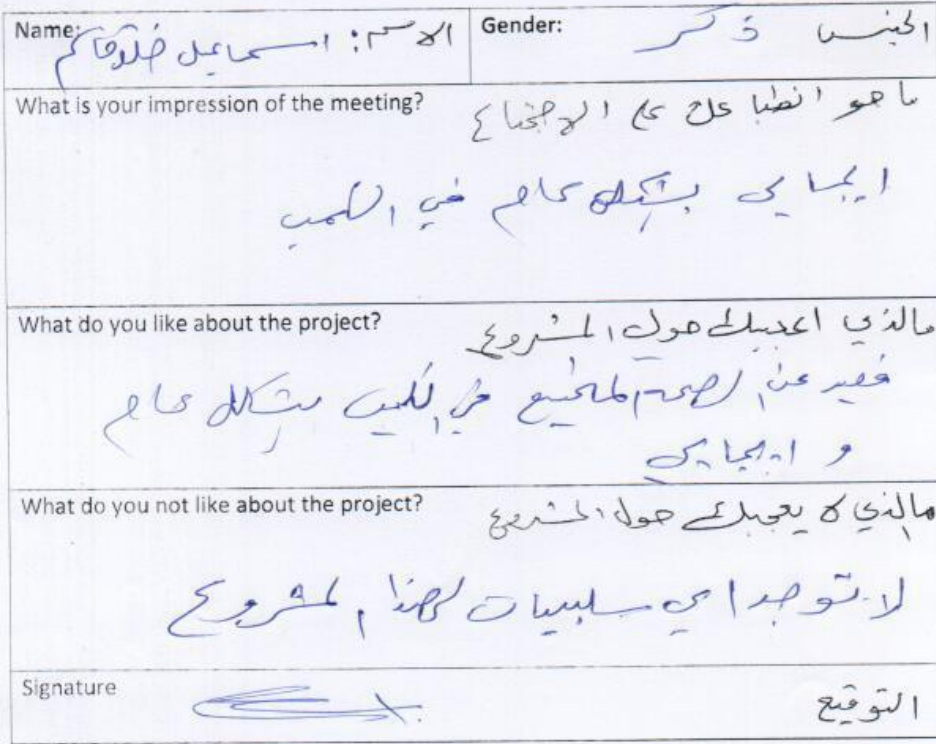 Name: الاسم: اسماعيل خلف قاسم
Gender: الجنس ذكر
What is your impression of the meeting? ما هو انطباعك عن الاجتماع
ايجابي بشكل عام في الكمب
What do you like about the project? مالذي اعجبك حول المشروع
مفيد عن لصحة المجتمع في الكمب بشكل عام
و ايجابي
What do you not like about the project? مالذي لا يعجبك حول المشروع
لا توجد اي سلبيات لهذا المشروع
Signature التوقيع